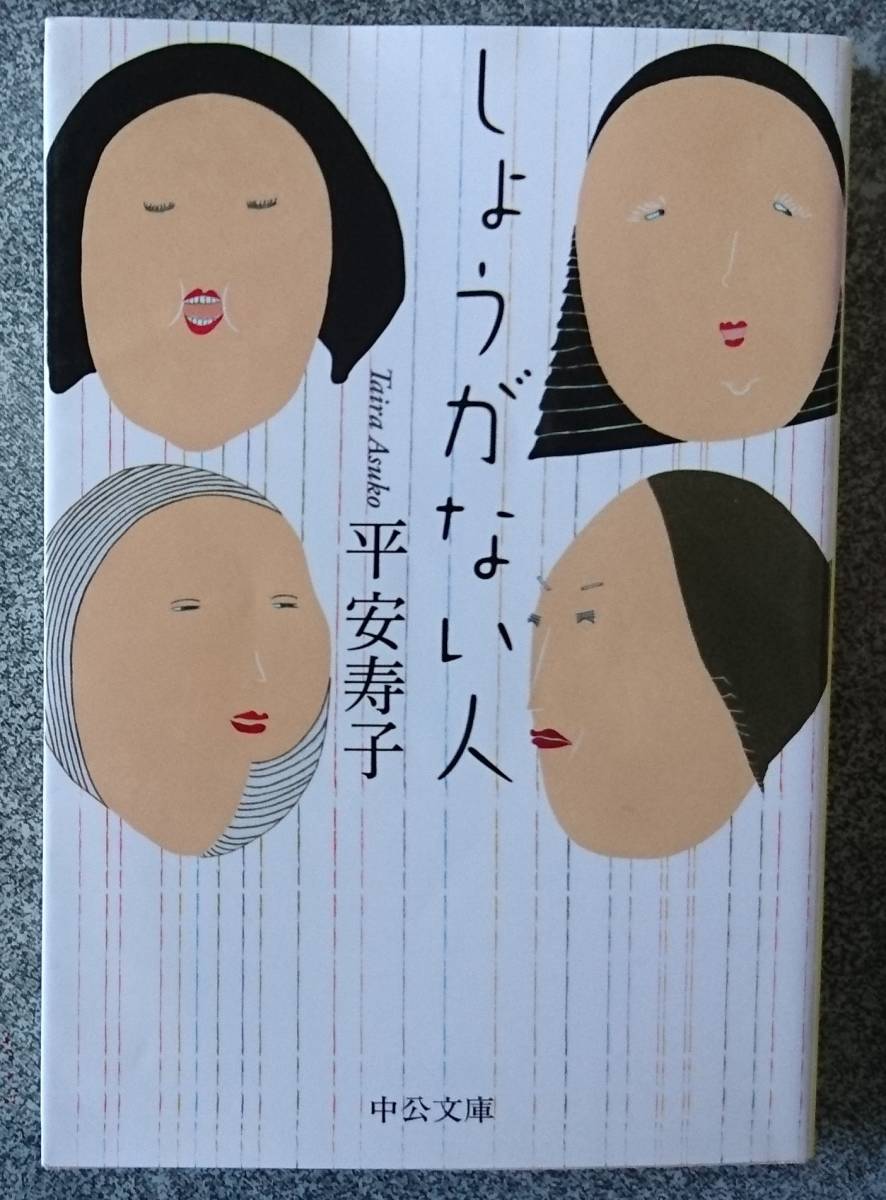 しょうがない人
Taira Asuko
平安寿子
中公文庫